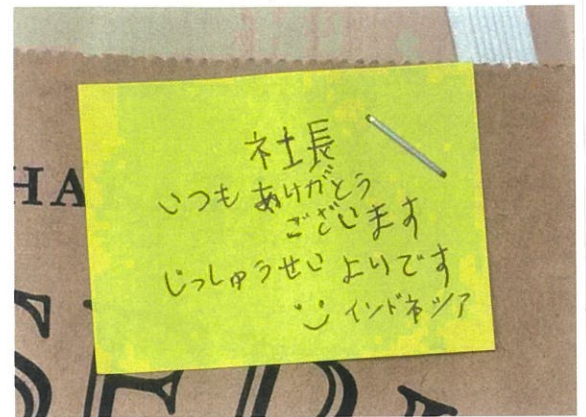 社長
HA
いつも ありがとう
ございます
じっしゅうせい よりです
インドネシア